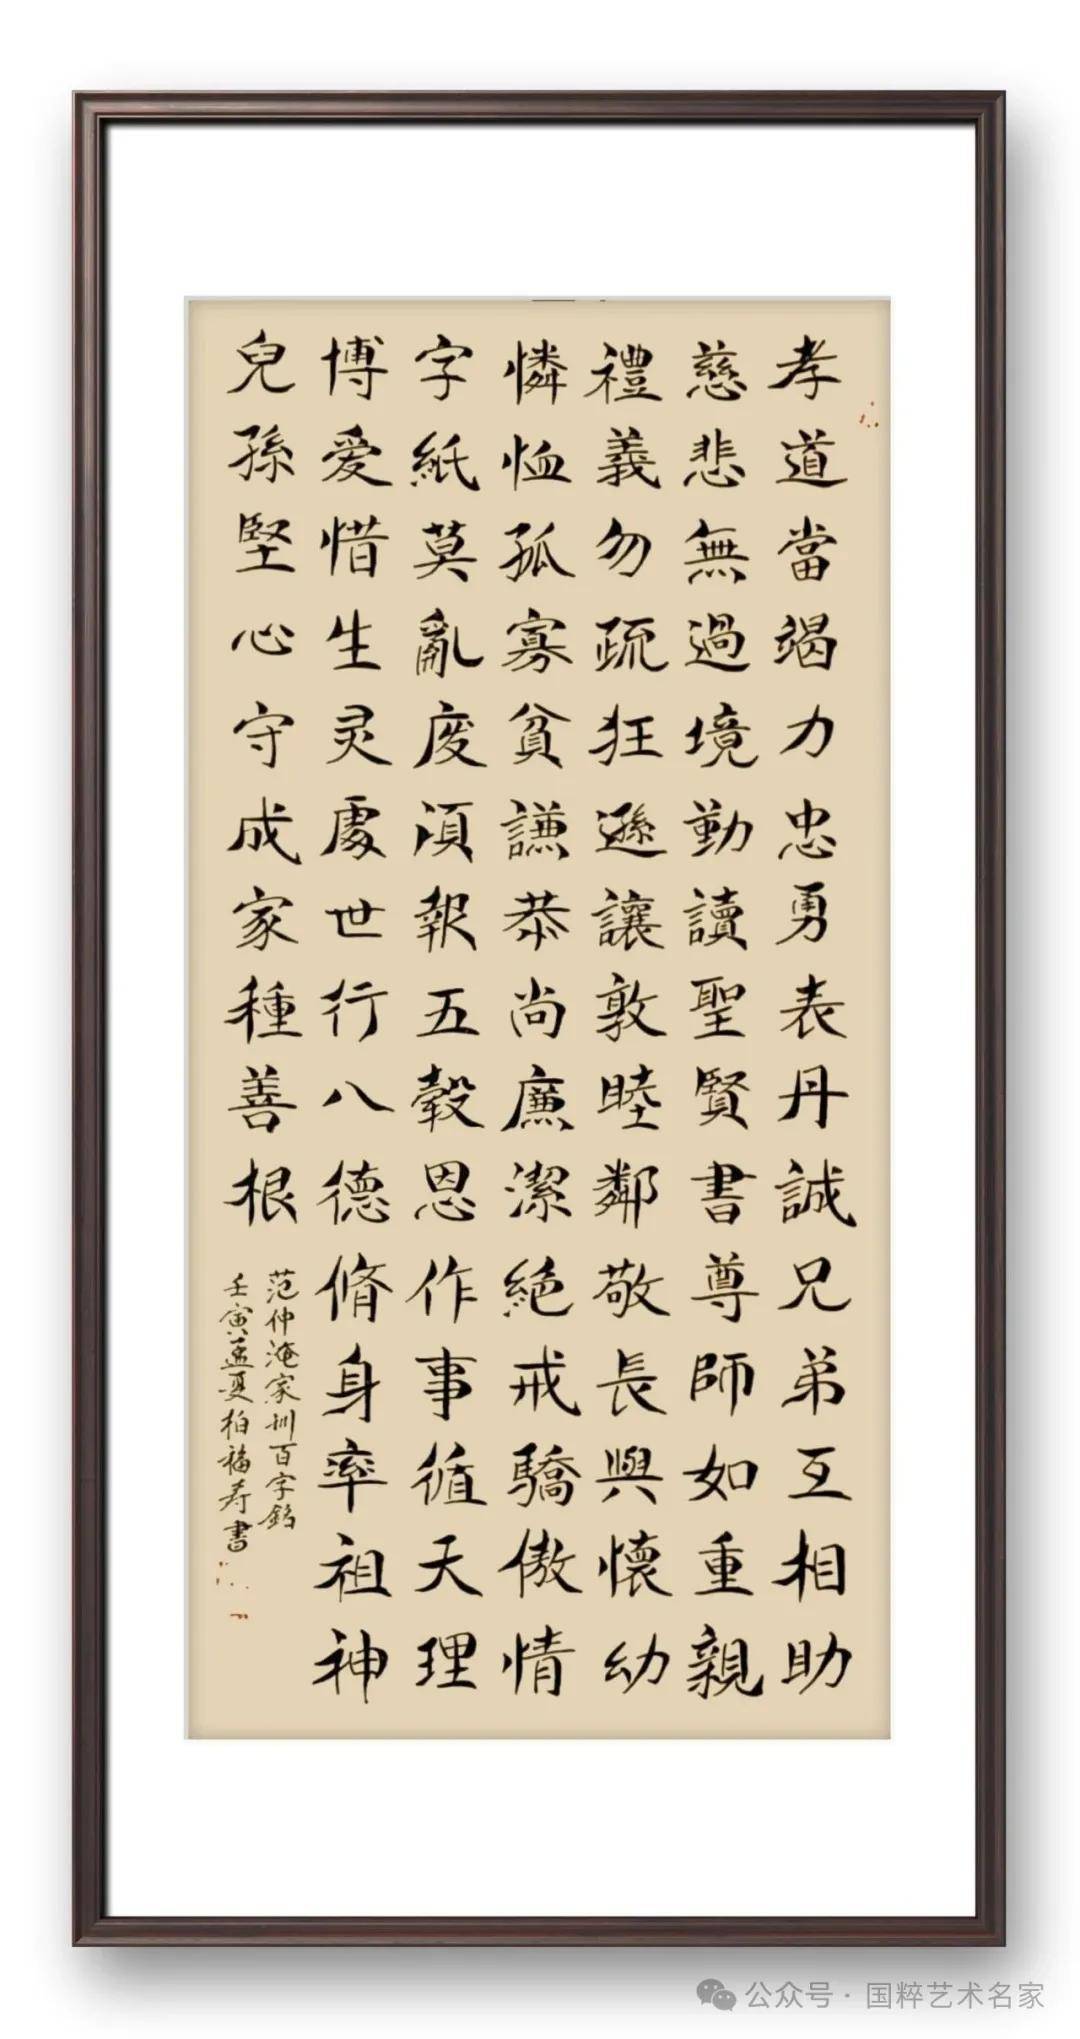 孝道當竭力忠勇表丹誠兄弟互相助
慈悲無過境勤讀聖賢書尊師如重親
禮義勿疏狂遜讓敦睦鄰敬長與懷幼
憐恤孤寡貧謙恭尚廉潔絕戒驕傲情
字紙莫亂废須報五穀恩作事循天理
博爱惜生灵處世行八德脩身率祖神
兒孫堅心守成家種善根
范仲淹家训百字銘
壬寅孟夏柏福寿書
公众号·国粹艺术名家